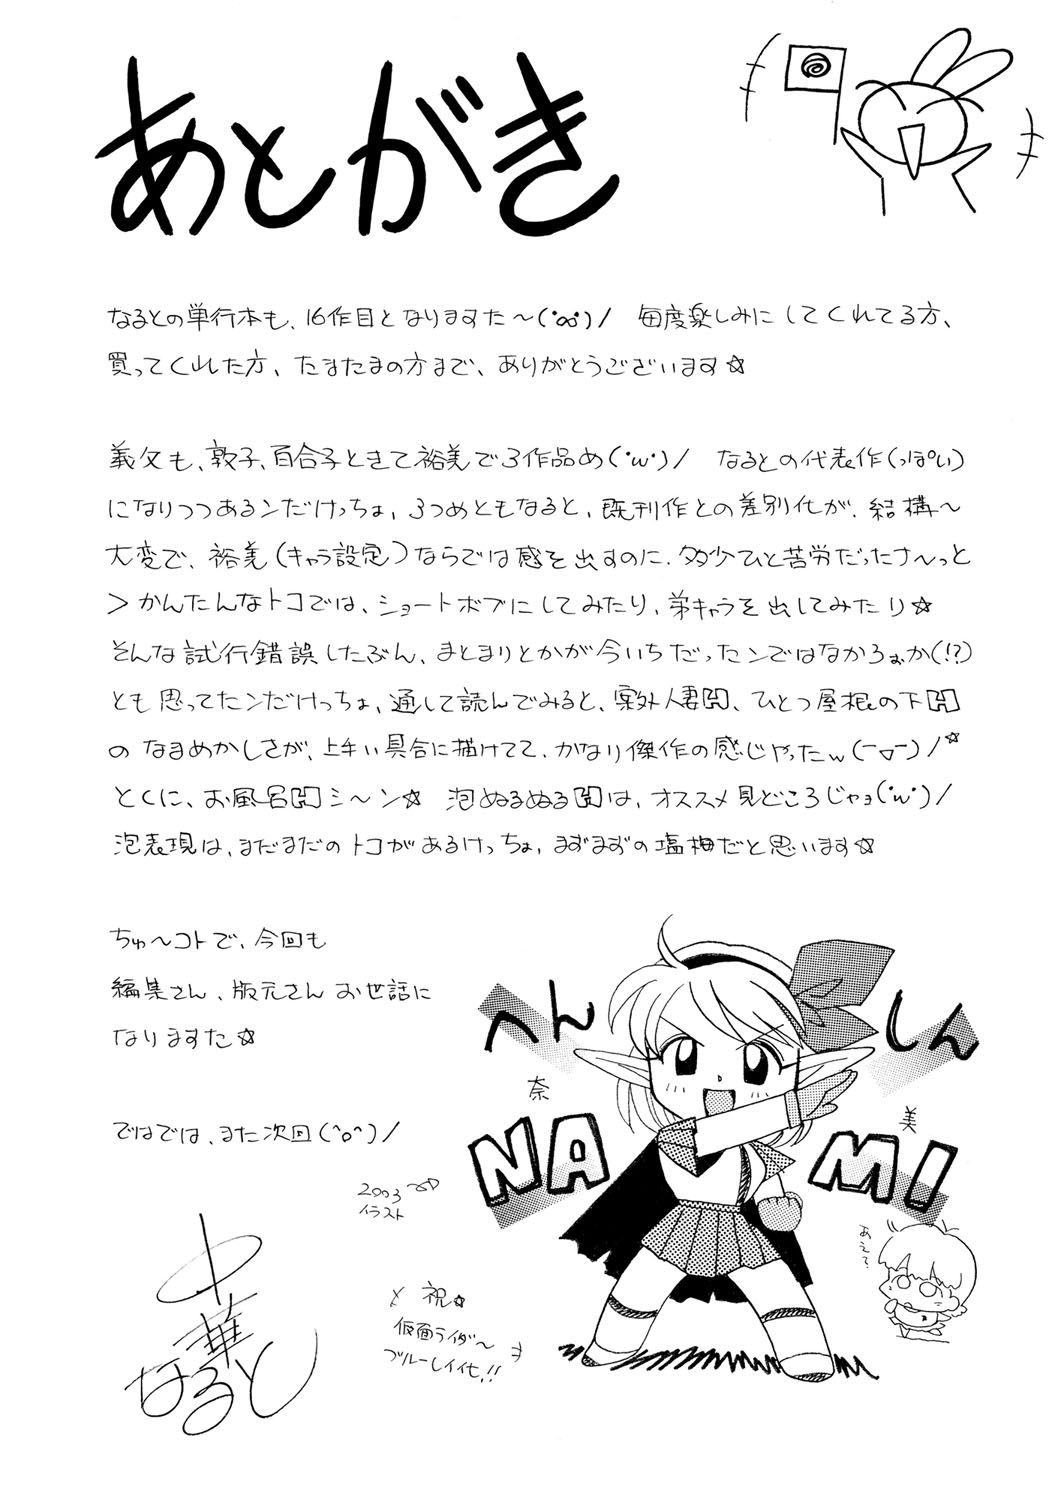 あとがき
なるとの単行本も、16作目となりますた～(・∞・)/ 毎度楽しみにしてくれてる方、
買ってくれた方、たまたまの方まで、ありがとうございます☆
義父も、敦子、百合子ときて裕美で3作品め(・ω・)/ なるとの代表作(っぽい)
になりつつあるンだけっちょ、3つめともなると、既刊作との差別化が、結構～
大変で、裕美(キャラ設定)ならでは感を出すのに、多少ひと苦労だったナ～っと
＞かんたんなトコでは、ショートボブにしてみたり、弟キャラを出してみたり☆
そんな試行錯誤したぶん、まとまりとかが今いちだったンではなかろぉか(!?)
とも思ってたンだけっちょ、通して読んでみると、案外人妻H、ひとつ屋根の下H
のなまめかしさが、上手い具合に描けてて、かなり傑作の感じやったw(￣▽￣)/*
とくに、お風呂Hシ～ン☆ 泡ぬるぬるHは、オススメ見どころじゃョ(・ω・)/
泡表現は、まだまだのトコがあるけっちょ、まずまずの塩梅だと思います☆
ちゅ～コトで、今回も
編集さん、版元さんお世話に
なりますた☆
ではでは、また次回(^o^)/
へんしん
奈美
NAMI
あえて?
2003
イラスト
祝☆
仮面ライダ～
ブルーレイ化!!
中華
なると